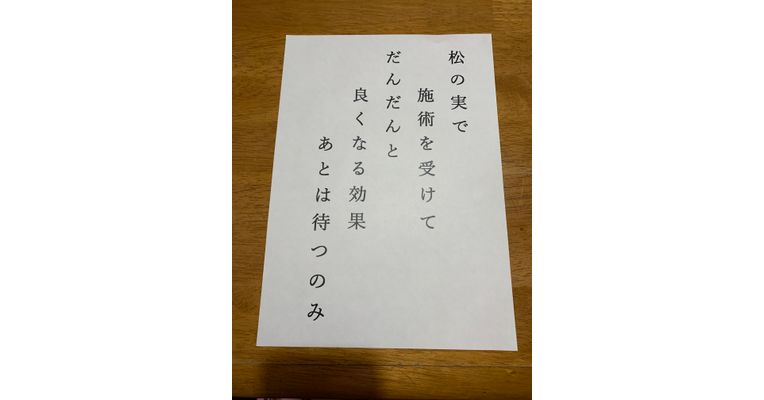 松の実で
施術を受けて
だんだんと
良くなる効果
あとは待つのみ